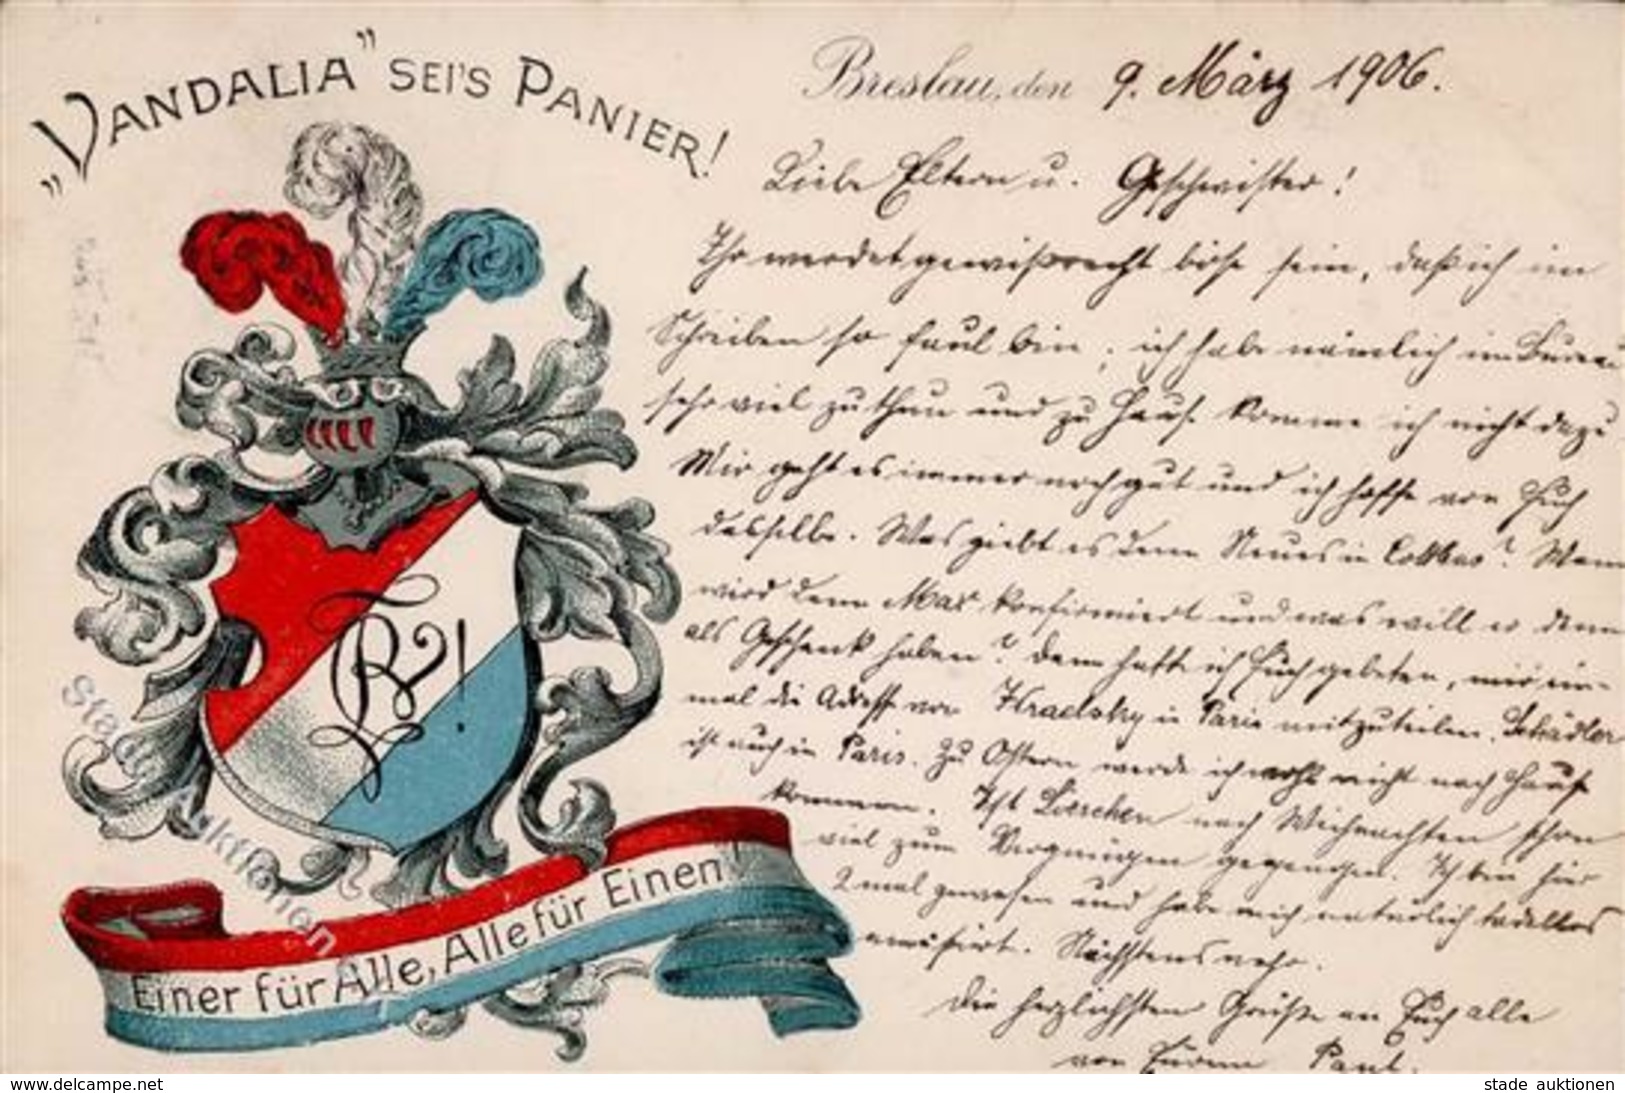 „VANDALIA” SEI'S PANIER!
Breslau, den 9. März 1906.
Liebe Eltern u. Geschwister!
Ihr werdet gewiß recht böse sein, daß ich im
Schreiben so faul bin, ich habe nämlich im Bureau
sehr viel zu thun und zu Hause komme ich nicht dazu
Mir geht es immer noch gut und ich hoffe von Euch
dasselbe. Was giebt es denn Neues in Cottbus? Wann
wird denn Max konfirmiert und was will er denn
als Geschenk haben? Dann hatte ich Euch gebeten, mir ein-
mal die Adresse von in Paris mitzuteilen. Schädler
ist auch in Paris. Zu Ostern werde ich wohl nicht nach Hause
kommen. Ist Lieschen nach Weihnachten schon
viel zum Vergnügen gegangen. Ich bin hier
2 mal gewesen und habe mich natürlich tadellos
amüsirt. Nächstens mehr.
Die herzlichsten Grüße an Euch alle
von Eurem Paul.
Einer für Alle, Alle für Einen!
Stade Auktionen
www.delcampe.net
stade auktionen